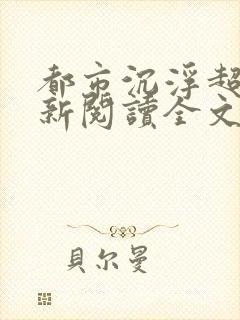 都市沉浮超
新閱讀全文
貝尔曼